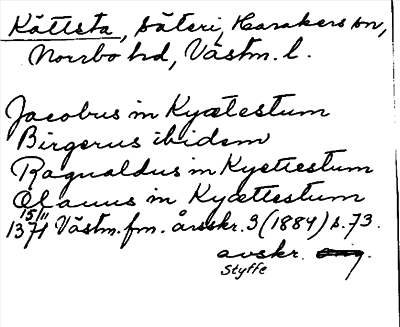 Kättsta, säteri, Harakers sn,
Norrbo hd, Västm. l.
Jacobus in Kyætestum
Birgerus ibidem
Ragualdus in Kyetiestum
Olauus in Kyættestum
15/11
1371 Västm. fm. årsskr. 3 (1884) s. 73.
avskr. orig.
Styffe